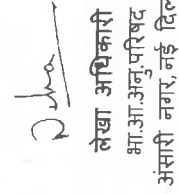 लेखा अधिकारी
भा.आ.अनु.परिषद
अंसारी नगर, नई